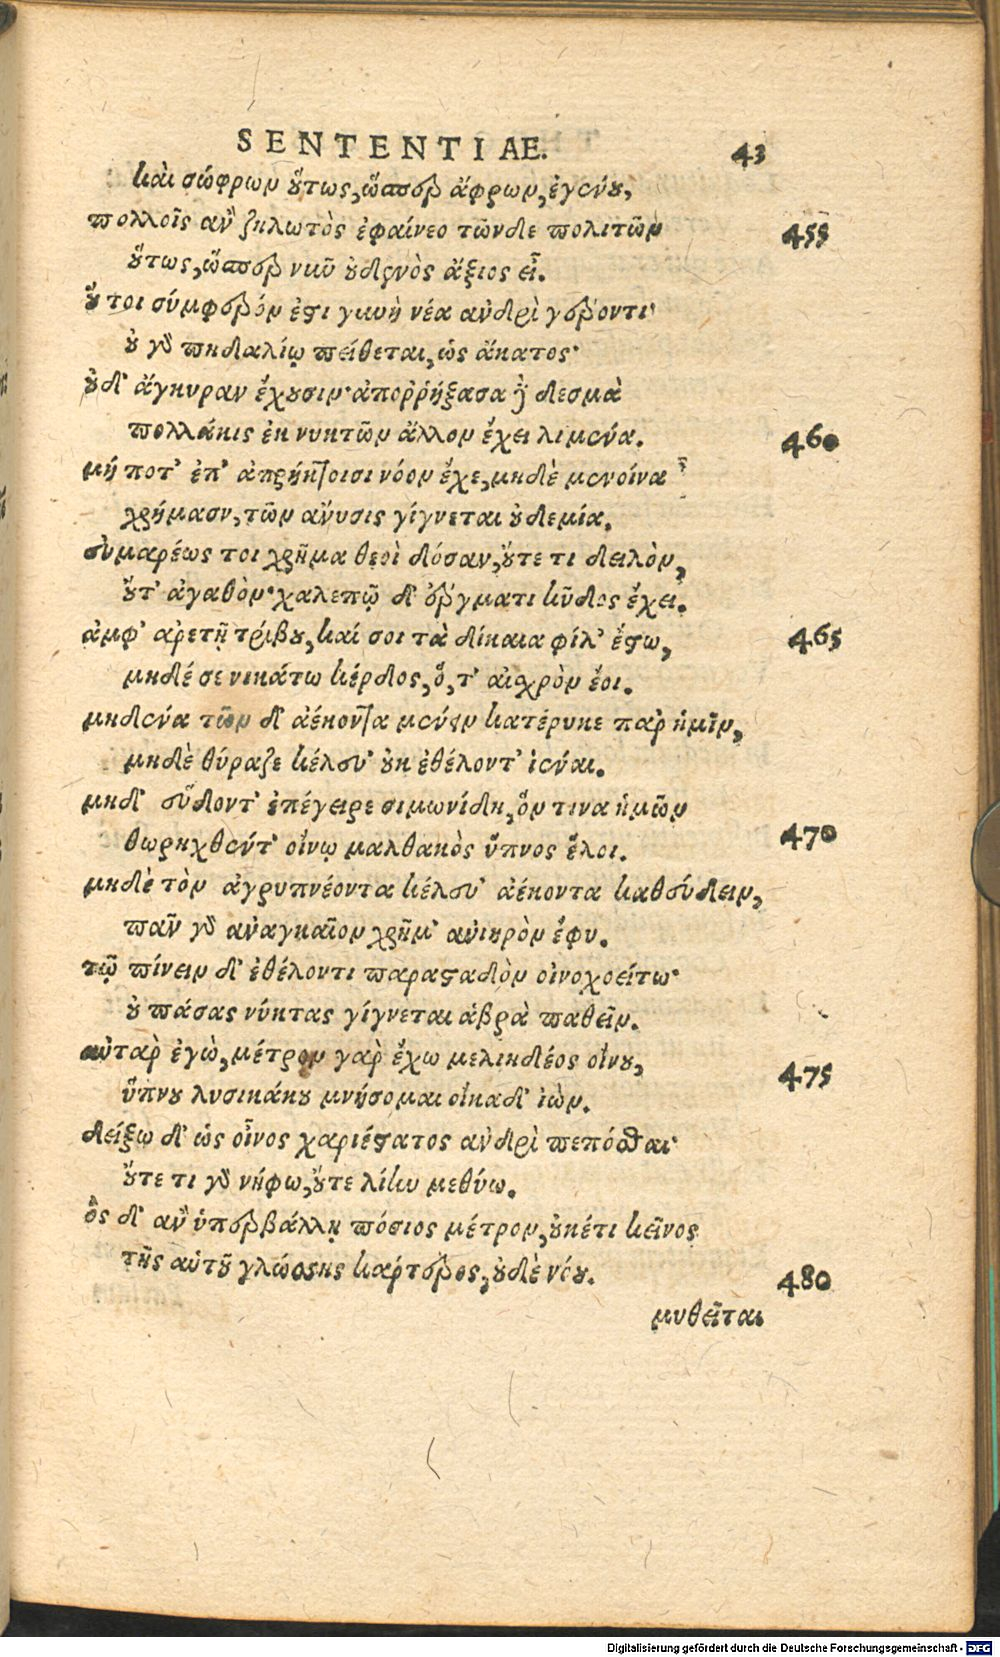 SENTENTIAE. 43
καὶ σώφρων οὕτως, ὥσπερ ἄφρων, ἐγένου,
πολλοῖς ἂν ζηλωτὸς ἐφαίνεο τῶνδε πολιτῶν 455
οὕτως, ὥσπερ νῦν οὐδενὸς ἄξιος εἶ.
οὔ τοι σύμφερόν ἐστι γυνὴ νέα ἀνδρὶ γέροντι·
οὐ γὰρ πηδαλίῳ πείθεται, ὡς ἄκατος·
οὐδ' ἄγκυραν ἔχουσιν· ἀποῤῥήξασα δὲ δεσμὰ
πολλάκις ἐκ νυκτῶν ἄλλον ἔχει λιμένα. 460
μή ποτ' ἐπ' ἀπρήκτοισι νόον ἔχε, μηδὲ μενοίνα
χρήμασιν, τῶν ἄνυσις γίγνεται οὐδεμία.
εὐμαρέως τοι χρῆμα θεοὶ δόσαν, οὔτε τι δειλὸν,
οὔτ' ἀγαθὸν· χαλεπῷ δ' ἔργματι κῦδος ἔχει.
ἀμφ' ἀρετῇ τρίβου, καί σοι τὰ δίκαια φίλ' ἔστω, 465
μηδέ σε νικάτω κέρδος, ὅ, τ' αἰσχρὸν ἔοι.
μηδένα τῶν δ' ἀέκοντα μένειν κατέρυκε παρ' ἡμῖν,
μηδὲ θύραζε κέλευ' οὐκ ἐθέλοντ' ἰέναι.
μηδ' εὕδοντ' ἐπέγειρε σιμωνίδη, ὅν τινα ἡμῶν
θωρηχθέντ' οἴνῳ μαλθακὸς ὕπνος ἕλοι. 470
μηδὲ τὸν ἀγρυπνέοντα κέλευ' ἀέκοντα καθεύδειν,
πᾶν γὰρ ἀναγκαῖον χρῆμ' ἀνιηρὸν ἔφυ.
τῷ πίνειν δ' ἐθέλοντι παρασταδὸν οἰνοχοείτω·
οὐ πάσας νύκτας γίγνεται ἁβρὰ παθεῖν.
αὐτὰρ ἐγὼ, μέτρον γὰρ ἔχω μελικδέος οἴνου, 475
ὕπνου λυσικάκου μνήσομαι οἴκαδ' ἰὼν.
δείξω δ' ὡς οἶνος χαριέστατος ἀνδρὶ πεπόσθαι·
οὔτε τι γὰρ νήφω, οὔτε λίην μεθύω.
ὃς δ' ἂν ὑπερβάλλῃ πόσιος μέτρον, οὐκέτι κεῖνος
τῆς αὑτοῦ γλώσσης καρτερὸς, οὐδὲ νόου. 480
μυθεῖται
Digitalisierung gefördert durch die Deutsche Forschungsgemeinschaft - DFG